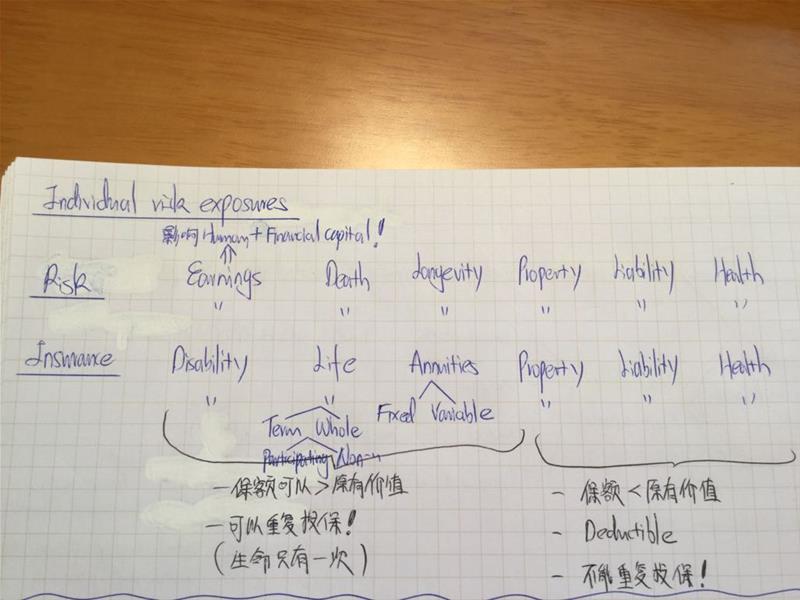 Individual risk exposures
影响 Human + Financial capital!
Risk Earnings Death Longevity Property Liability Health
" " " " " "
Insurance Disability Life Annuities Property Liability Health
" " " " "
Term Whole Fixed Variable
Participating Non-"
- 保额可以 > 原有价值
- 可以重复投保!
(生命只有一次)
- 保额 < 原有价值
- Deductible
- 不能重复投保!